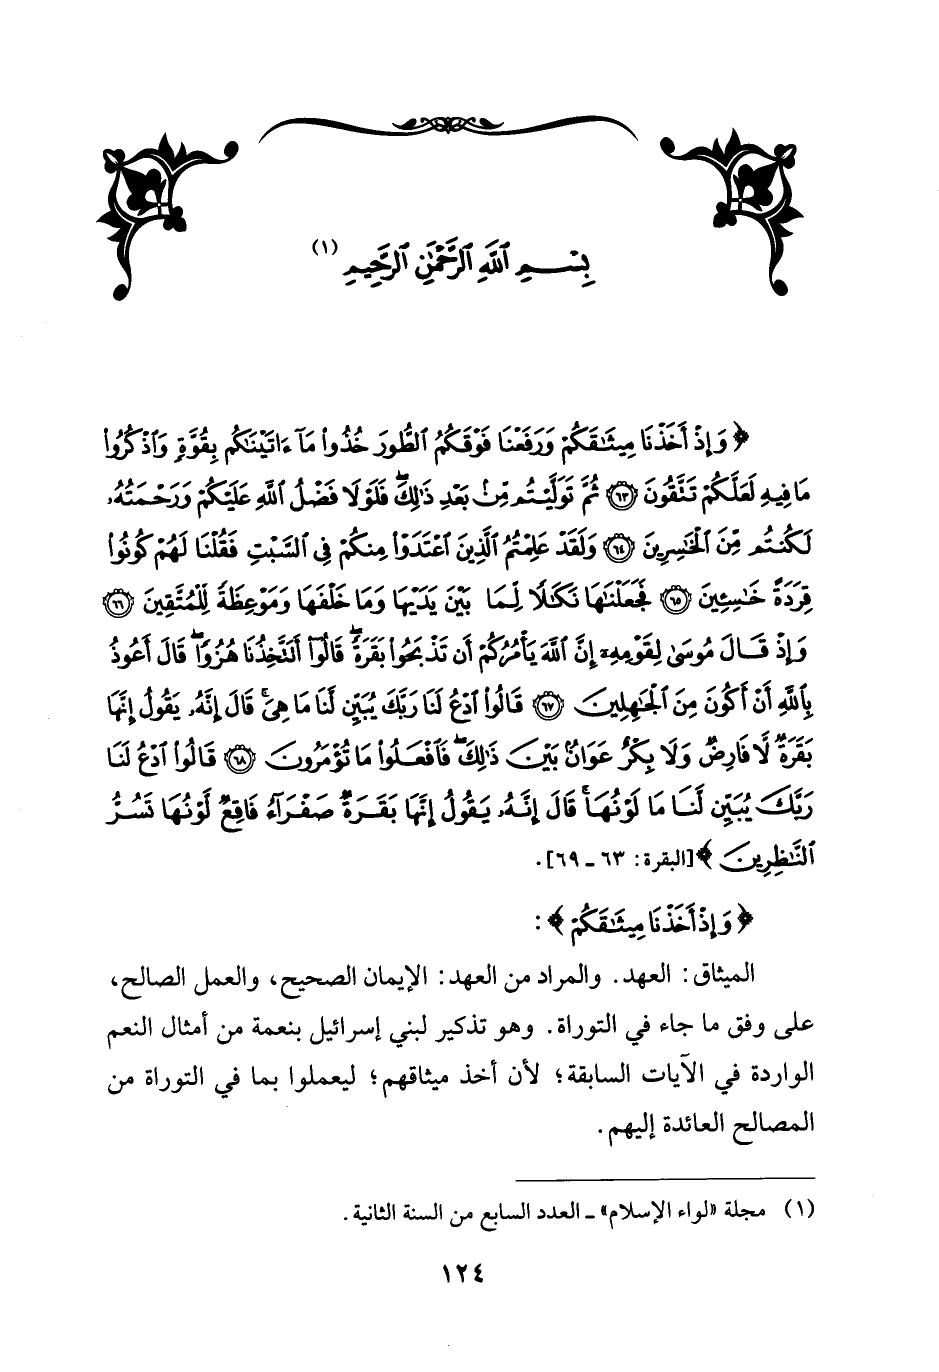 بِسْمِ ٱللَّهِ ٱلرَّحْمَٰنِ ٱلرَّحِيمِ (١)
﴿ وَإِذْ أَخَذْنَا مِيثَٰقَكُمْ وَرَفَعْنَا فَوْقَكُمُ ٱلطُّورَ خُذُوا۟ مَآ ءَاتَيْنَٰكُم بِقُوَّةٍ وَٱذْكُرُوا۟
مَا فِيهِ لَعَلَّكُمْ تَتَّقُونَ ٦٣ ثُمَّ تَوَلَّيْتُم مِّنۢ بَعْدِ ذَٰلِكَ ۖ فَلَوْلَا فَضْلُ ٱللَّهِ عَلَيْكُمْ وَرَحْمَتُهُۥ
لَكُنتُم مِّنَ ٱلْخَٰسِرِينَ ٦٤ وَلَقَدْ عَلِمْتُمُ ٱلَّذِينَ ٱعْتَدَوْا۟ مِنكُمْ فِى ٱلسَّبْتِ فَقُلْنَا لَهُمْ كُونُوا۟
قِرَدَةً خَٰسِـِٔينَ ٦٥ فَجَعَلْنَٰهَا نَكَٰلًا لِّمَا بَيْنَ يَدَيْهَا وَمَا خَلْفَهَا وَمَوْعِظَةً لِّلْمُتَّقِينَ ٦٦
وَإِذْ قَالَ مُوسَىٰ لِقَوْمِهِۦٓ إِنَّ ٱللَّهَ يَأْمُرُكُمْ أَن تَذْبَحُوا۟ بَقَرَةً ۖ قَالُوٓا۟ أَتَتَّخِذُنَا هُزُوًا ۖ قَالَ أَعُوذُ
بِٱللَّهِ أَنْ أَكُونَ مِنَ ٱلْجَٰهِلِينَ ٦٧ قَالُوا۟ ٱدْعُ لَنَا رَبَّكَ يُبَيِّن لَّنَا مَا هِىَ ۚ قَالَ إِنَّهُۥ يَقُولُ إِنَّهَا
بَقَرَةٌ لَّا فَارِضٌ وَلَا بِكْرٌ عَوَانٌۢ بَيْنَ ذَٰلِكَ ۖ فَٱفْعَلُوا۟ مَا تُؤْمَرُونَ ٦٨ قَالُوا۟ ٱدْعُ لَنَا
رَبَّكَ يُبَيِّن لَّنَا مَا لَوْنُهَا ۚ قَالَ إِنَّهُۥ يَقُولُ إِنَّهَا بَقَرَةٌ صَفْرَآءُ فَاقِعٌ لَّوْنُهَا تَسُرُّ
ٱلنَّٰظِرِينَ ﴾ [البقرة: ٦٣ ـ ٦٩].
﴿ وَإِذْ أَخَذْنَا مِيثَٰقَكُمْ ﴾ :
الميثاق: العهد. والمراد من العهد: الإيمان الصحيح، والعمل الصالح،
على وفق ما جاء في التوراة. وهو تذكير لبني إسرائيل بنعمة من أمثال النعم
الواردة في الآيات السابقة؛ لأن أخذ ميثاقهم؛ ليعملوا بما في التوراة من
المصالح العائدة إليهم.
(١) مجلة «لواء الإسلام» ـ العدد السابع من السنة الثانية.
١٢٤